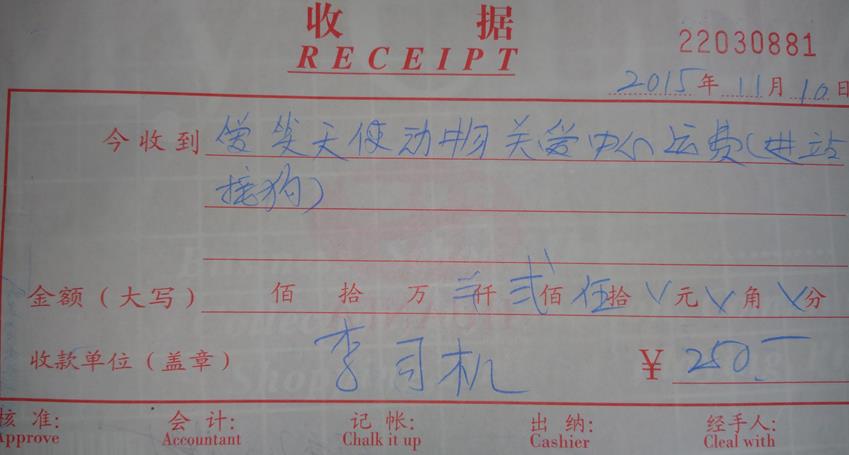 收 据
RECEIPT
22030881
2015年 11月 10日
今收到 天使动物关爱中心运费(进站
接狗)
金额(大写) 佰 拾 万 仟 贰佰 伍拾 元 角 分
收款单位(盖章) 李司机 ¥ 250.-
核 准: 会 计: 记 帐: 出 纳: 经手人:
Approve Accountant Chalk it up Cashier Cleal with